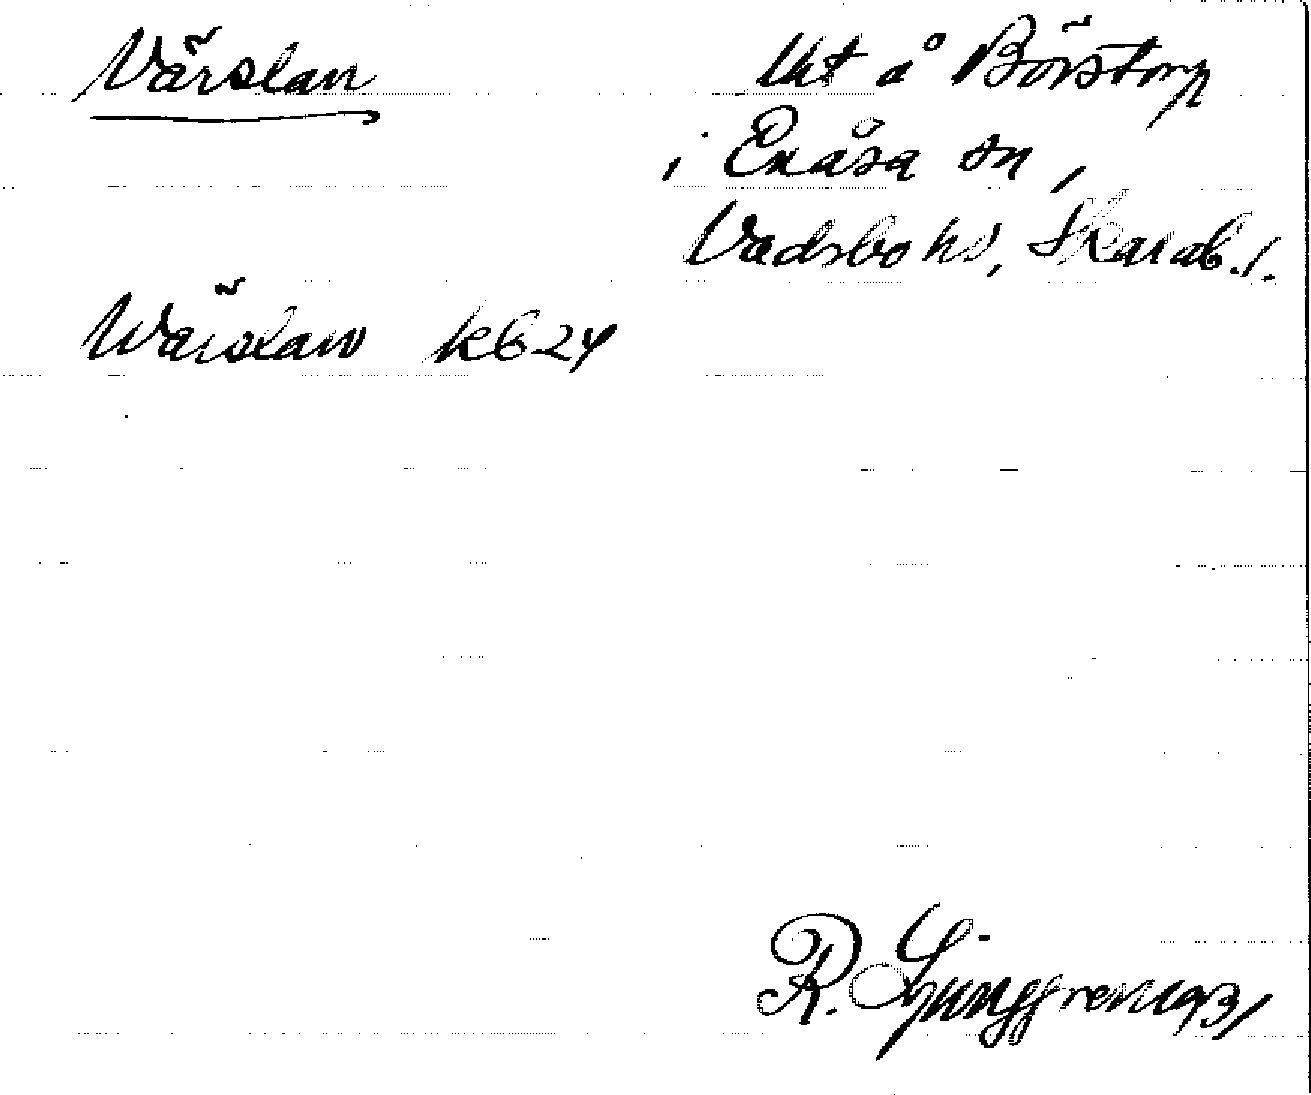 Värslan
Unt å Börstorp
i Enåsa sn,
Vadsbo hd, Skarab. l.
Wärslaw k624
R. Ljunggren 1931